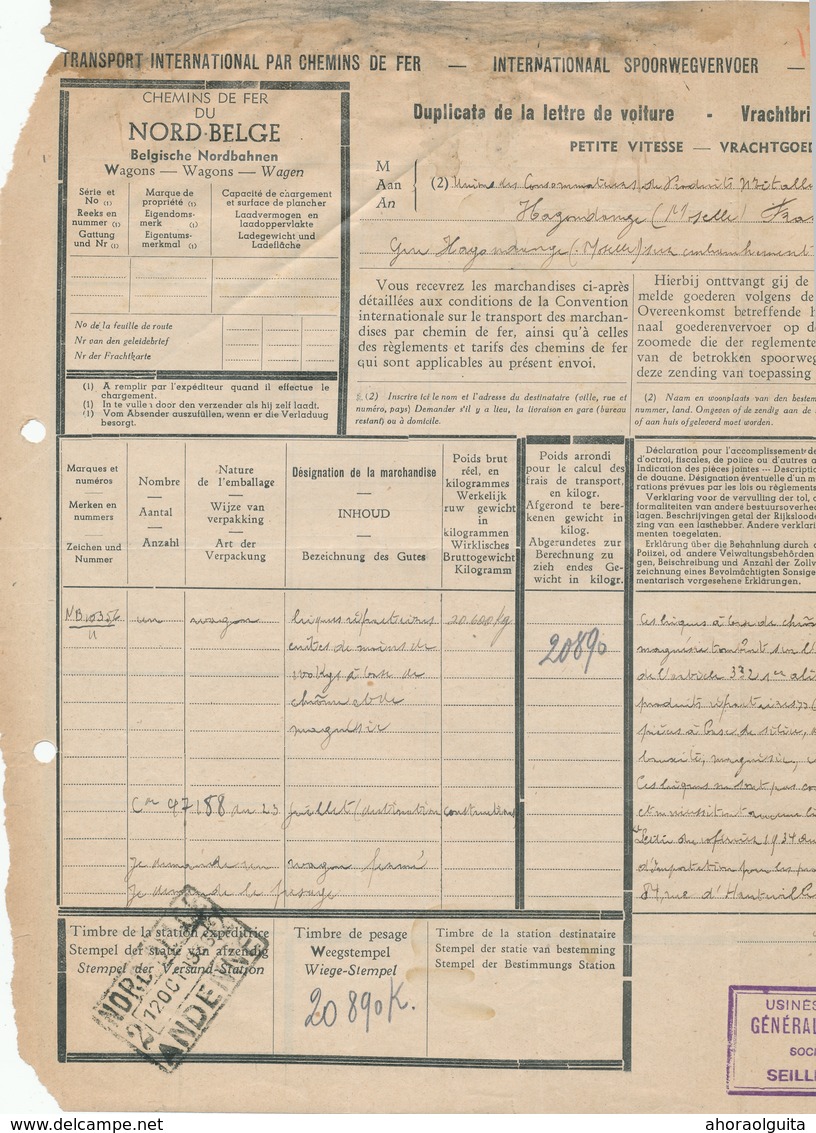 TRANSPORT INTERNATIONAL PAR CHEMINS DE FER — INTERNATIONAAL SPOORWEGVERVOER —
CHEMINS DE FER
DU
NORD-BELGE
Belgische Nordbahnen
Wagons — Wagons — Wagen
Série et No (1)
Reeks en nummer (1)
Gattung und Nr (1)
Marque de propriété (1)
Eigendomsmerk (1)
Eigentumsmerkmal (1)
Capacité de chargement et surface de plancher
Laadvermogen en laadoppervlakte
Ladegewicht und Ladefläche
No de la feuille de route
Nr van den geleidebrief
Nr der Frachtkarte
(1) A remplir par l'expéditeur quand il effectue le
chargement.
(1) In te vullen door den verzender als hij zelf laadt.
(1) Vom Absender auszufüllen, wenn er die Verladuug
besorgt.
Duplicata de la lettre de voiture - Vrachtbri
PETITE VITESSE — VRACHTGOED
M
Aan
An
(2) Union des Consommateurs de Produits Métall
Hagondange (Moselle) Fra
Gare Hagondange (Moselle) sur embranchement
Vous recevrez les marchandises ci-après
détaillées aux conditions de la Convention
internationale sur le transport des marchan-
dises par chemin de fer, ainsi qu'à celles
des règlements et tarifs des chemins de fer
qui sont applicables au présent envoi.
(2) Inscrire ici le nom et l'adresse du destinataire (ville, rue et
numéro, pays) Demander s'il y a lieu, la livraison en gare (bureau
restant) ou à domicile.
Hierbij onttvangt gij de
melde goederen volgens de
Overeenkomst betreffende h
naal goederenvervoer op d
zoomede die der reglemente
van de betrokken spoorweg
deze zending van toepassing
(2) Naam en woonplaats van den bestem
nummer, land. Omgeven of de zending aan de
of aan huis afgeleverd moet worden.
Marques et numéros
Merken en nummers
Zeichen und Nummer
Nombre
Aantal
Anzahl
Nature de l'emballage
Wijze van verpakking
Art der Verpackung
Désignation de la marchandise
INHOUD
Bezeichnung des Gutes
Poids brut réel, en kilogrammes
Werkelijk ruw gewicht in kilogrammen
Wirklisches Bruttogewicht Kilogramm
Poids arrondi pour le calcul des frais de transport, en kilogr.
Afgerond te berekenen gewicht in kilog.
Abgerundetes zur Berechnung zu zieh endes Gewicht in kilogr.
Déclaration pour l'accomplissement de
d'octroi, fiscales, de police ou d'autres a
Indication des pièces jointes --- Descriptio
de douane. Désignation éventuelle d'un m
rations prévues par les lois ou règlements
Verklaring voor de vervulling der tol, c
formaliteiten van andere bestuursoverhe
lagen. Beschrijvingen getal der Rijkslood
zing van een lasthebber. Andere verklari
menten toegelaten.
Erklärung über die Behahnlung durch d
Poiizei, od andere Velwaltungsbehörden
gen, Beischreibung und Anzahl der Zollv
zeichnung eines Bevolmächtigten Sonsige
mentarisch vorgesehene Erklärungen.
un wagon briques réfractaires 20.600kg
cuites de moins de
100 Kgs à base de
chrôme et de
magnésie
20890
47188 du 23 juillet (destination construction)
Je demande un wagon fermé
Je demande le pesage
Ces briques à base de chrôm
magnésie tombent sur l'
de l'article 332 1er ali
produits réfractaires
pièces à base de silice,
bauxite, magnésie,
Ces briques ne sont pas
1934
d'importation pour les
84, rue d'Hauteville
Timbre de la station expéditrice
Stempel der statie van afzendig
Stempel der Versand-Station
Timbre de pesage
Weegstempel
Wiege-Stempel
20890K.
Timbre de la station destinataire
Stempel der statie van bestemming
Stempel der Bestimmungs Station
NORD
12 OCT
ANDENNE
USINES
GÉNÉRAL
SOCI
SEILL
ahoraolguita